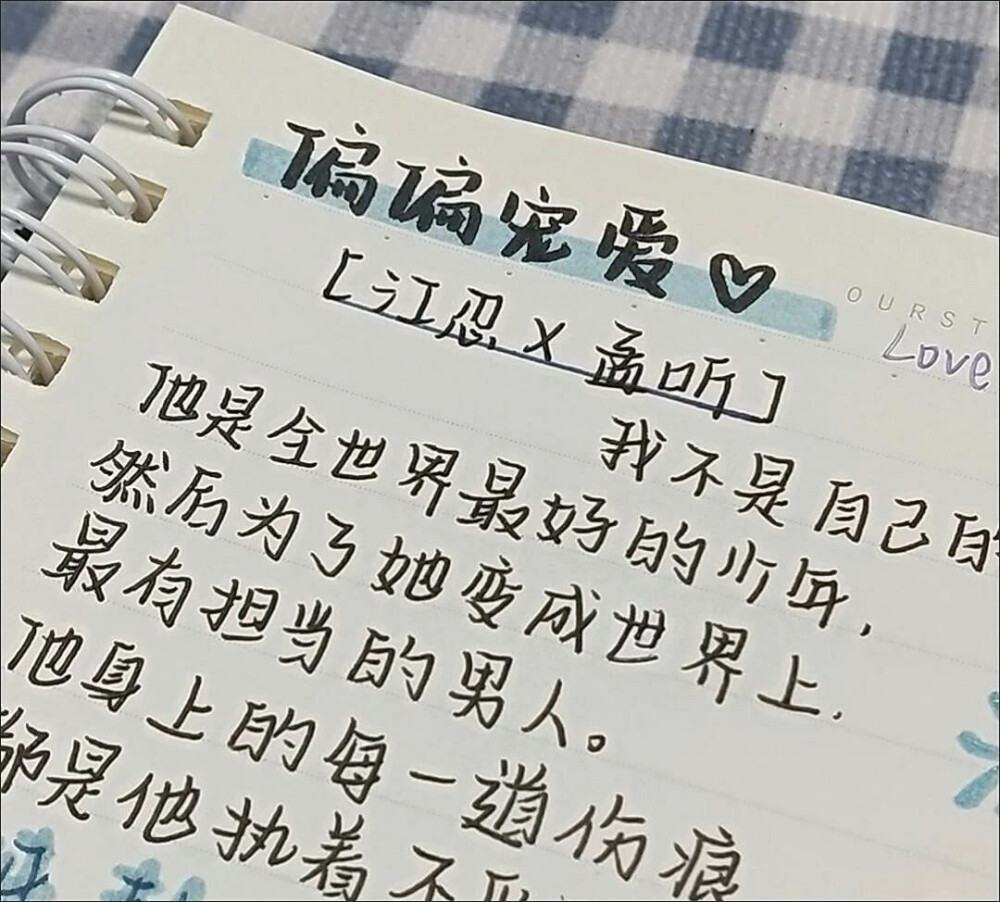 偏偏宠爱♡
OURST
Love
[江忍×孟听]
我不是自己的
他是全世界最好的少年,
然后为了她变成世界上.
最有担当的男人。
他身上的每一道伤痕
都是他执着不